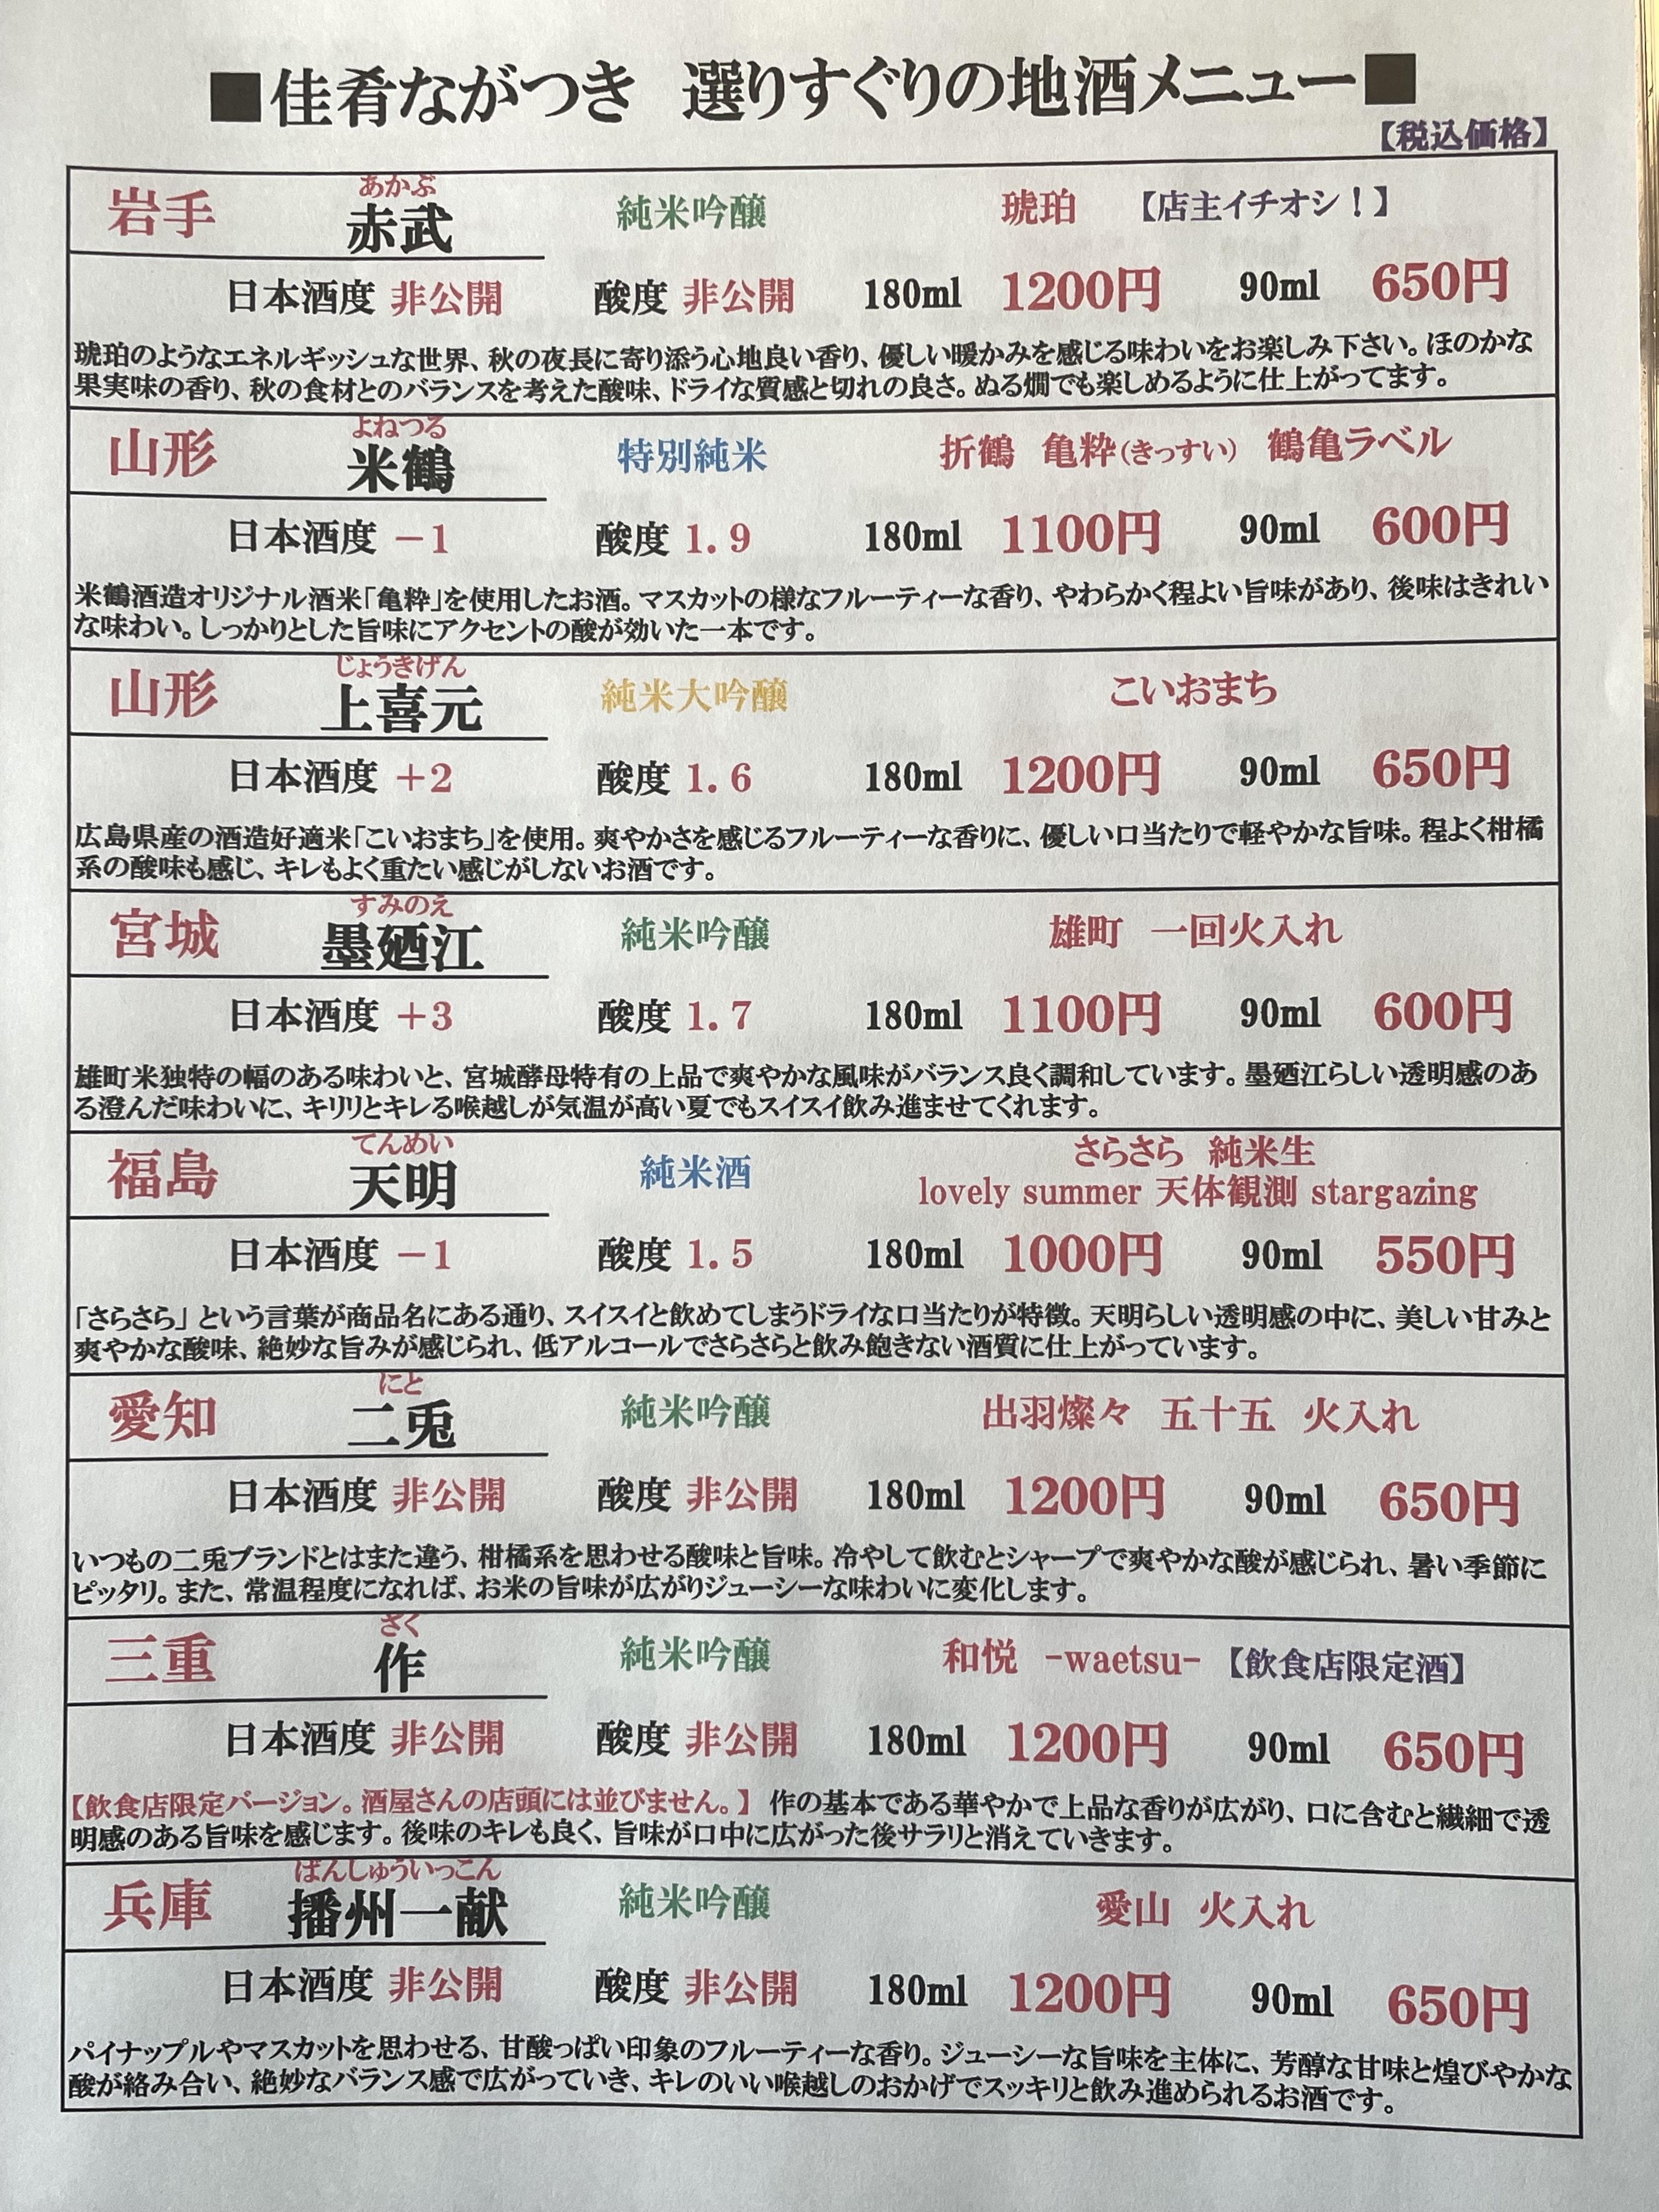 ■佳肴ながつき 選りすぐりの地酒メニュー■
【税込価格】
あかぶ
岩手 赤武 純米吟醸 琥珀 【店主イチオシ！】
日本酒度 非公開 酸度 非公開 180ml 1200円 90ml 650円
琥珀のようなエネルギッシュな世界、秋の夜長に寄り添う心地良い香り、優しい暖かみを感じる味わいをお楽しみ下さい。ほのかな
果実味の香り、秋の食材とのバランスを考えた酸味、ドライな質感と切れの良さ。ぬる燗でも楽しめるように仕上がってます。
よねつる
山形 米鶴 特別純米 折鶴 亀粋(きっすい) 鶴亀ラベル
日本酒度 －1 酸度 1.9 180ml 1100円 90ml 600円
米鶴酒造オリジナル酒米「亀粋」を使用したお酒。マスカットの様なフルーティーな香り、やわらかく程よい旨味があり、後味はきれい
な味わい。しっかりとした旨味にアクセントの酸が効いた一本です。
じょうきげん
山形 上喜元 純米大吟醸 こいおまち
日本酒度 ＋2 酸度 1.6 180ml 1200円 90ml 650円
広島県産の酒造好適米「こいおまち」を使用。爽やかさを感じるフルーティーな香りに、優しい口当たりで軽やかな旨味。程よく柑橘
系の酸味も感じ、キレもよく重たい感じがしないお酒です。
すみのえ
宮城 墨廼江 純米吟醸 雄町 一回火入れ
日本酒度 ＋3 酸度 1.7 180ml 1100円 90ml 600円
雄町米独特の幅のある味わいと、宮城酵母特有の上品で爽やかな風味がバランス良く調和しています。墨廼江らしい透明感のあ
る澄んだ味わいに、キリリとキレる喉越しが気温が高い夏でもスイスイ飲み進ませてくれます。
てんめい
福島 天明 純米酒 さらさら 純米生
lovely summer 天体観測 stargazing
日本酒度 －1 酸度 1.5 180ml 1000円 90ml 550円
「さらさら」という言葉が商品名にある通り、スイスイと飲めてしまうドライな口当たりが特徴。天明らしい透明感の中に、美しい甘みと
爽やかな酸味、絶妙な旨みが感じられ、低アルコールでさらさらと飲み飽きない酒質に仕上がっています。
にと
愛知 二兎 純米吟醸 出羽燦々 五十五 火入れ
日本酒度 非公開 酸度 非公開 180ml 1200円 90ml 650円
いつもの二兎ブランドとはまた違う、柑橘系を思わせる酸味と旨味。冷やして飲むとシャープで爽やかな酸が感じられ、暑い季節に
ピッタリ。また、常温程度になれば、お米の旨味が広がりジューシーな味わいに変化します。
ざく
三重 作 純米吟醸 和悦 -waetsu- 【飲食店限定酒】
日本酒度 非公開 酸度 非公開 180ml 1200円 90ml 650円
【飲食店限定バージョン。酒屋さんの店頭には並びません。】 作の基本である華やかで上品な香りが広がり、口に含むと繊細で透
明感のある旨味を感じます。後味のキレも良く、旨味が口中に広がった後サラリと消えていきます。
ばんしゅういっこん
兵庫 播州一献 純米吟醸 愛山 火入れ
日本酒度 非公開 酸度 非公開 180ml 1200円 90ml 650円
パイナップルやマスカットを思わせる、甘酸っぱい印象のフルーティーな香り。ジューシーな旨味を主体に、芳醇な甘味と煌びやかな
酸が絡み合い、絶妙なバランス感で広がっていき、キレのいい喉越しのおかげでスッキリと飲み進められるお酒です。